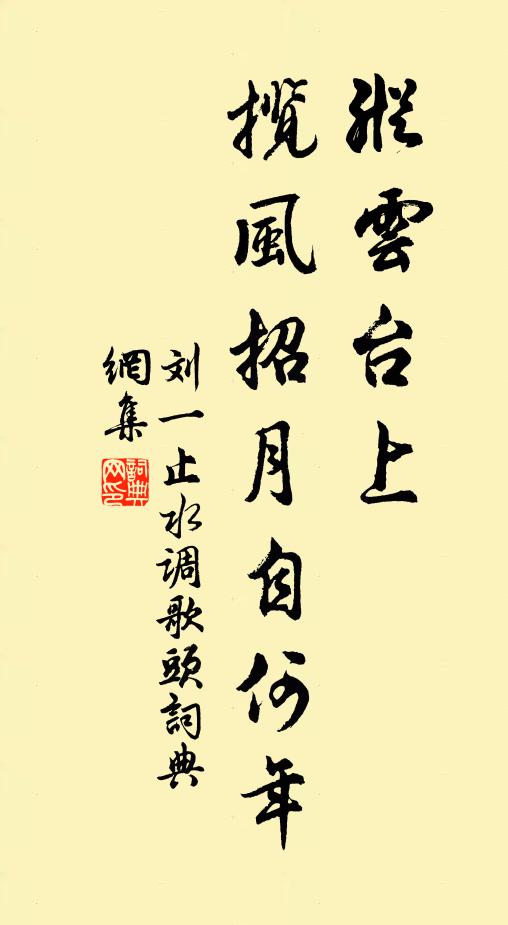 縱雲台上
攬風招月自何年
刘一止水调歌頭詞典
網集
詞典網印